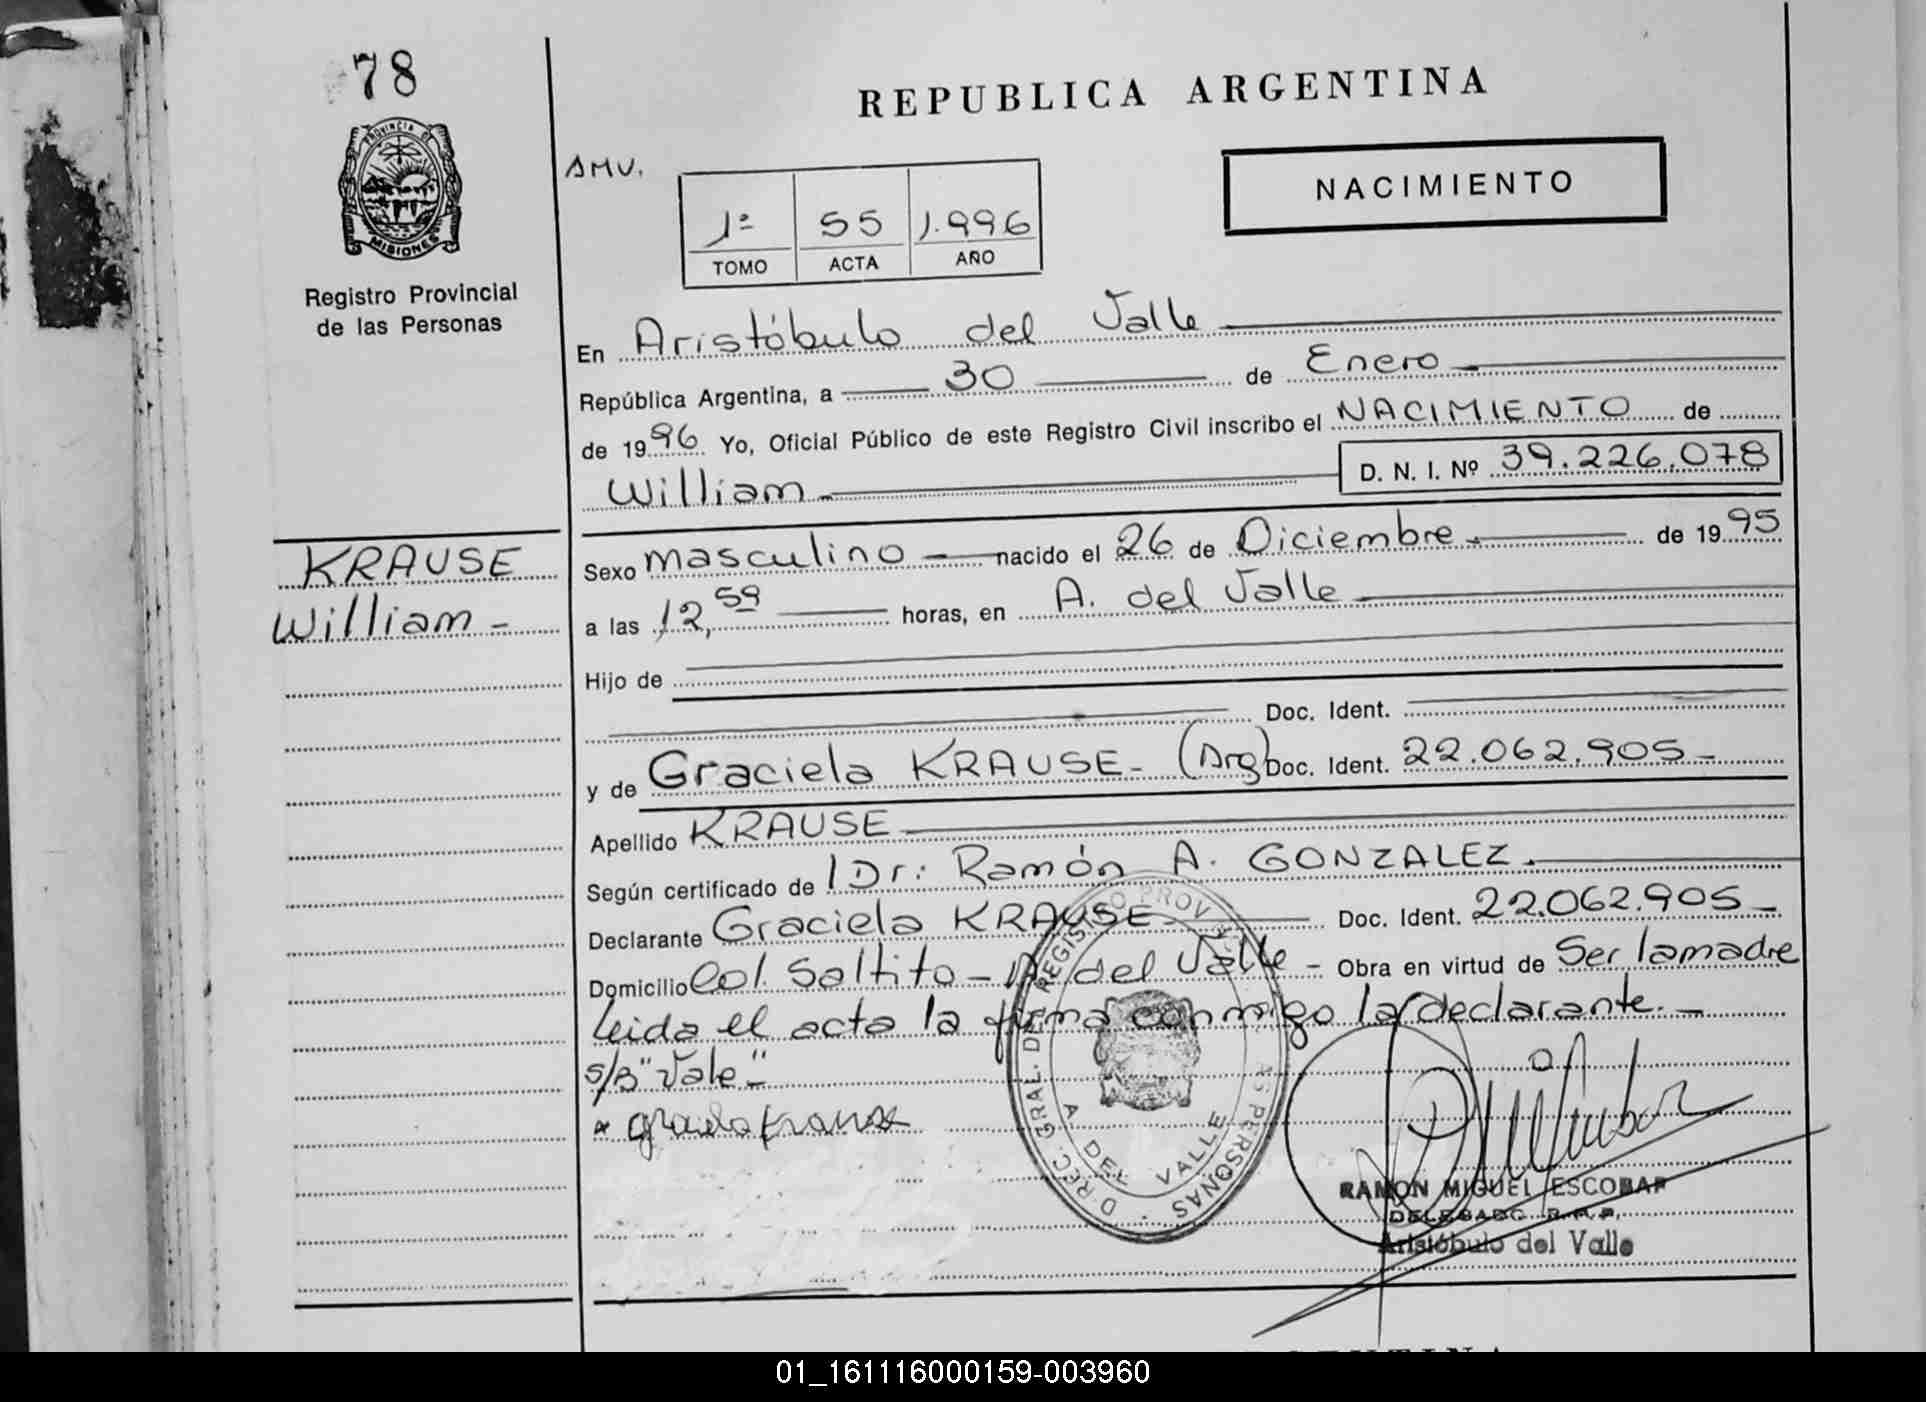 78
PROVINCIA DE
MISIONES
Registro Provincial
de las Personas
REPUBLICA ARGENTINA
AMV.
1ª 55 1.996
TOMO ACTA AÑO
NACIMIENTO
En Aristóbulo del Valle
República Argentina, a 30 de Enero
de 1996 Yo, Oficial Público de este Registro Civil inscribo el NACIMIENTO de
William D. N. I. Nº 39.226.078
KRAUSE
William -
Sexo masculino nacido el 26 de Diciembre de 1995
a las 12,59 horas, en A. del Valle
Hijo de
Doc. Ident.
y de Graciela KRAUSE - (Arg) Doc. Ident. 22.062.905 -
Apellido KRAUSE
Según certificado de Dr: Ramón A. GONZALEZ
Declarante Graciela KRAUSE Doc. Ident. 22.062.905 -
Domicilio Col. Saltito - A. del Valle - Obra en virtud de Ser la madre
Leida el acta la firma conmigo la declarante. -
s/B "Vale" -
graciela krause
D REC. GRAL. DE REGISTRO PROV. PERSONAS
A DEL VALLE
RAMON MIGUEL ESCOBAR
DELEGADO R.P.P.
Aristóbulo del Valle
01_161116000159-003960